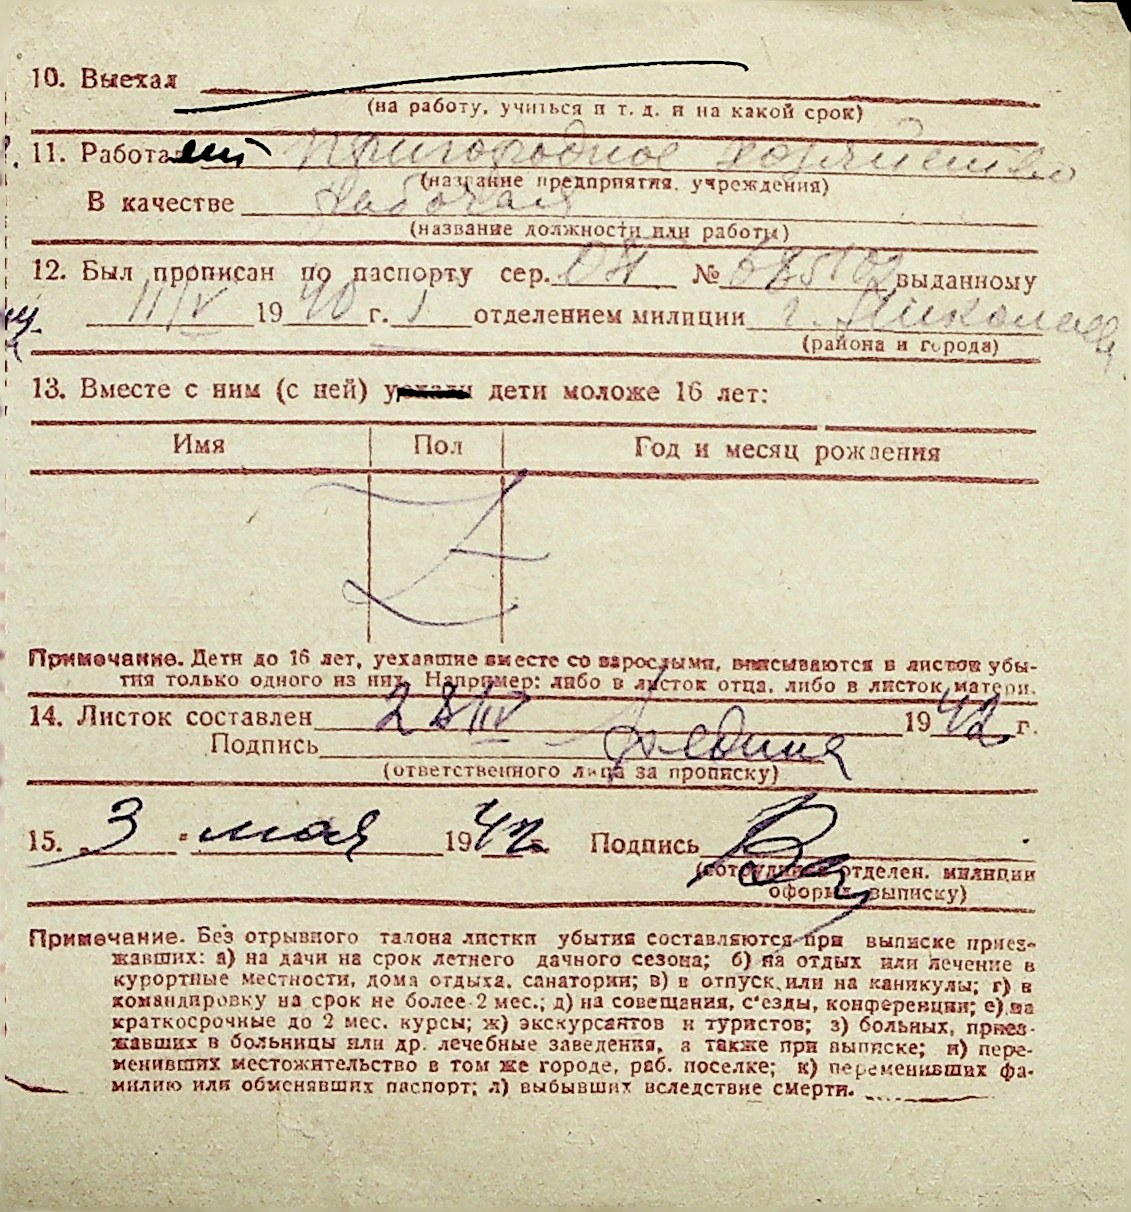 10. Выехал
(на работу, учиться и т. д. и на какой срок)
11. Работает Пригородное хозяйство
(название предприятия, учреждения)
В качестве рабочая
(название должности или работы)
12. Был прописан по паспорту сер. № выданному
11/V 1940 г. 1 отделением милиции г. Николаева
(района и города)
13. Вместе с ним (с ней) уехали дети моложе 16 лет:
Имя Пол Год и месяц рождения
Z
Примечание. Дети до 16 лет, уехавшие вместе со взрослыми, вписываются в листок убы-
тия только одного из них. Например: либо в листок отца, либо в листок матери.
14. Листок составлен 28/IV 1942 г.
Подпись
(ответственного лица за прописку)
15. 3 " мая 1942 г. Подпись
(сотрудника отделен. милиции
оформ. выписку)
Примечание. Без отрывного талона листки убытия составляются при выписке приез-
жавших: а) на дачи на срок летнего дачного сезона; б) на отдых или лечение в
курортные местности, дома отдыха, санатории; в) в отпуск или на каникулы; г) в
командировку на срок не более 2 мес.; д) на совещания, с'езды, конференции; е) на
краткосрочные до 2 мес. курсы; ж) экскурсантов и туристов; з) больных, приез-
жавших в больницы или др. лечебные заведения, а также при выписке; и) пере-
менивших местожительство в том же городе, раб. поселке; к) переменивших фа-
милию или обменявших паспорт; л) выбывших вследствие смерти.